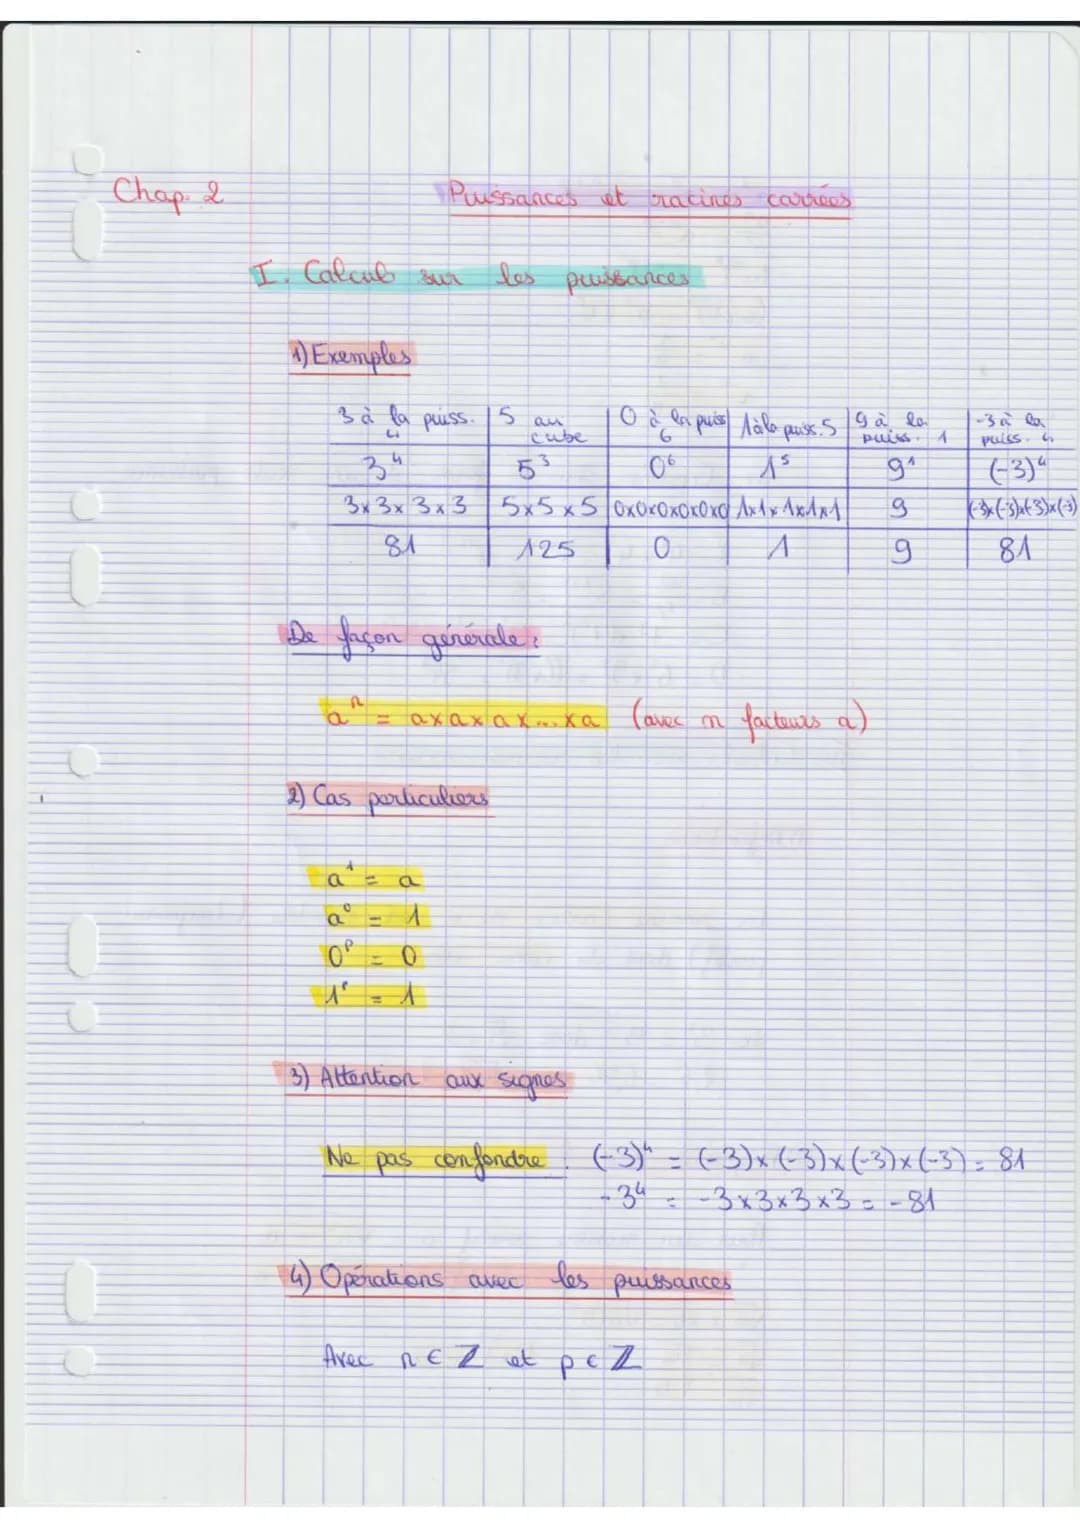 Chap. 2
Puissances et racines carrées
I. Calculs sur les puissances
1) Exemples
3 à la puiss. 4 | 5 au cube | 0 à la puiss 6 | 1 à la puiss. 5 | 9 à la puiss. 1 | -3 à la puiss. 4
3⁴ | 5³ | 0⁶ | 1⁵ | 9¹ | (-3)⁴
3x3x3x3 | 5x5x5 | 0x0x0x0x0x0 | 1x1x1x1x1 | 9 | (-3)x(-3)x(-3)x(-3)
81 | 125 | 0 | 1 | 9 | 81
De façon générale :
aⁿ = axaxax...xa (avec n facteurs a)
2) Cas particuliers
a¹ = a
a⁰ = 1
0ᵖ = 0
1ᵖ = 1
3) Attention aux signes
Ne pas confondre : (-3)⁴ = (-3)x(-3)x(-3)x(-3) = 81
-3⁴ = -3x3x3x3 = -81
4) Opérations avec les puissances
Avec n ∈ ℤ et p ∈ ℤ